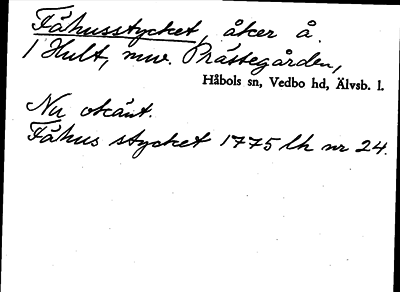 Fähusstycket, åker å.
1 Hult, mw. Prästegården,
Håbols sn, Vedbo hd, Älvsb. l.
Nu okänt.
Fähus stycket 1775 lh nr 24.